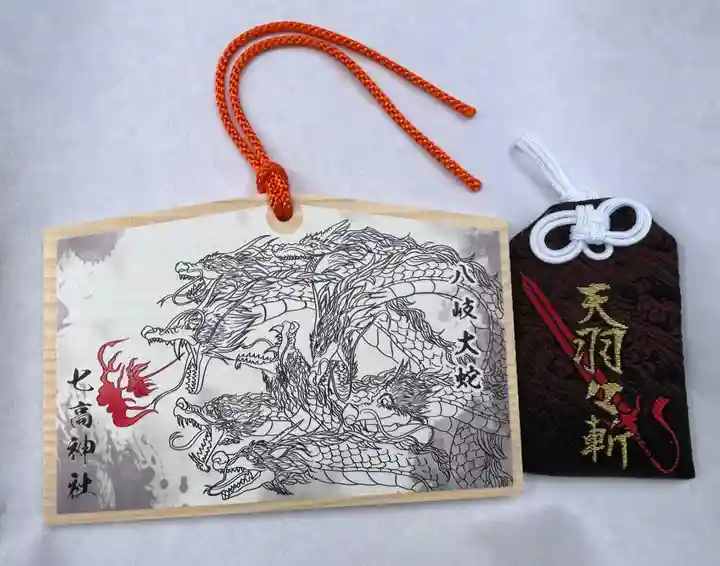 八岐大蛇
七高神社
天羽々斬